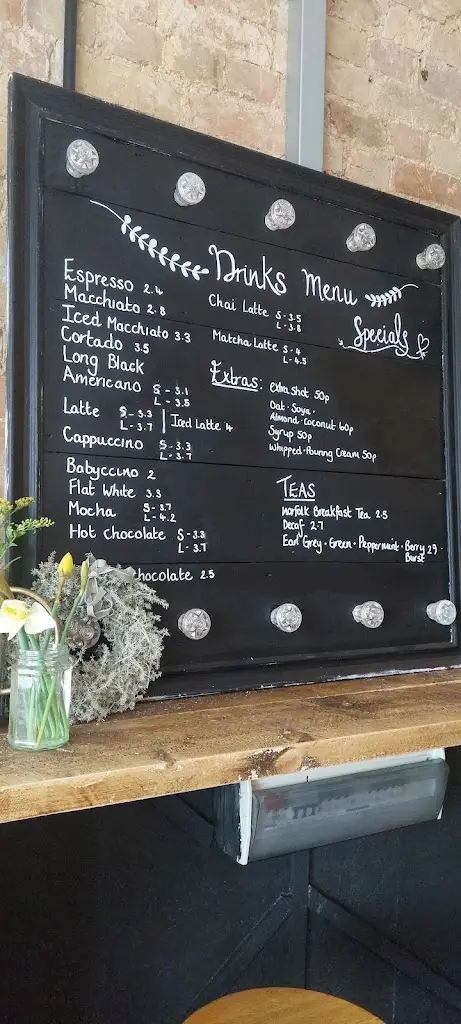 Drinks Menu
Espresso 2.4
Macchiato 2.8
Iced Macchiato 3.3
Cortado 3.5
Long Black
Americano S - 3.1
L - 3.8
Latte S - 3.3
L - 3.7 | Iced Latte 4
Cappuccino S - 3.3
L - 3.7
Babyccino 2
Flat White 3.3
Mocha S - 3.7
L - 4.2
Hot Chocolate S - 3.3
L - 3.7
chocolate 2.5
Chai Latte S - 3.5
L - 3.8
Matcha Latte S - 4
L - 4.5
Specials
Extras: extra shot 50p
Oat · Soya ·
Almond · Coconut 60p
Syrup 50p
Whipped · Pouring Cream 50p
TEAS
Norfolk Breakfast Tea 2.5
Decaf 2.7
Earl Grey · Green · Peppermint · Berry 2.9
Burst